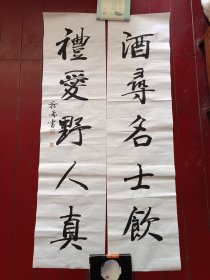 酒尋名士飲
禮愛野人真